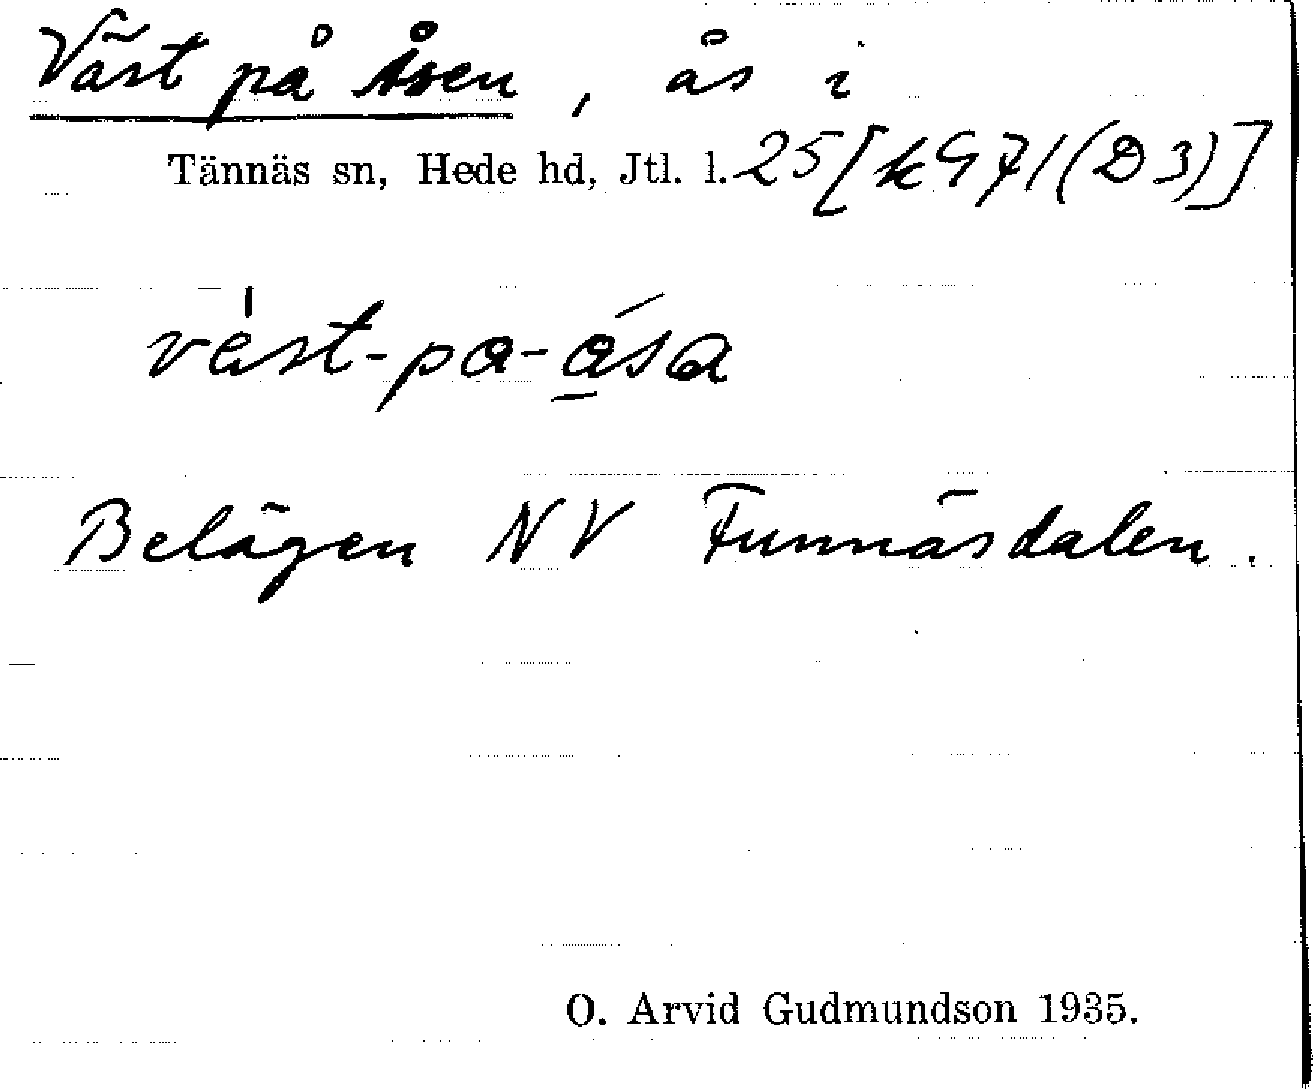 Väst på Åsen, ås i
Tännäs sn, Hede hd, Jtl. l. 25 [k971(D3)]
vèst-pa-åsa
Belägen NV Funnäsdalen.
O. Arvid Gudmundson 1935.